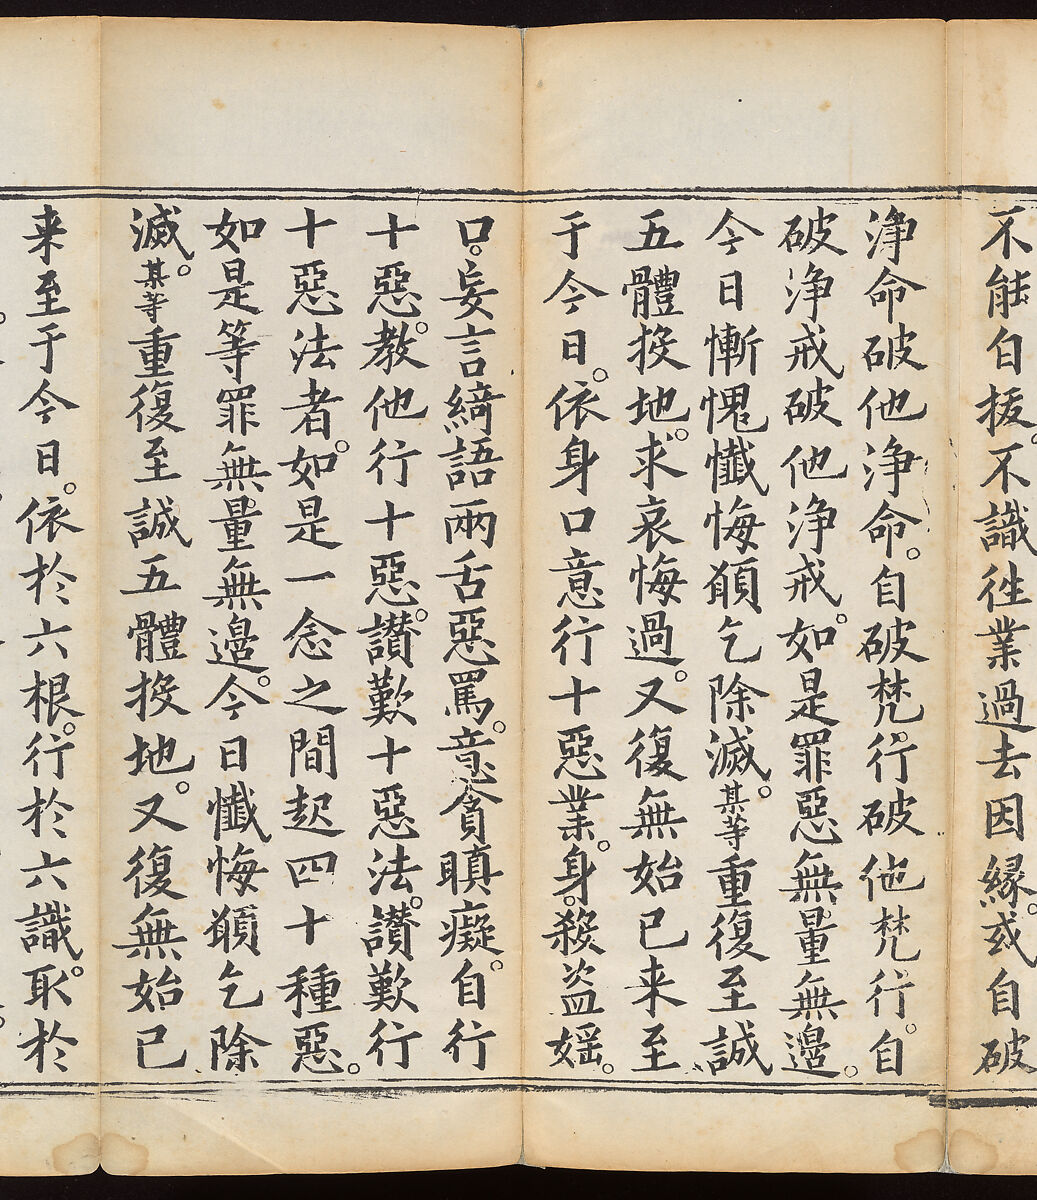 不能自拔。不識徃業過去因緣。或自破
淨命破他淨命。自破梵行破他梵行。自
破淨戒破他淨戒。如是罪惡無量無邊。
今日慚愧懺悔願乞除滅。某等重復至誠
五體投地。求哀悔過。又復無始已来至
于今日。依身口意行十惡業。身。殺盜婬。
口。妄言綺語兩舌惡罵。意貪瞋癡。自行
十惡。教他行十惡。讃歎十惡法。讃歎行
十惡法者。如是一念之間起四十種惡。
如是等罪無量無邊。今日懺悔願乞除
滅。某等重復至誠五體投地。又復無始已
来至于今日。依於六根。行於六識取。於